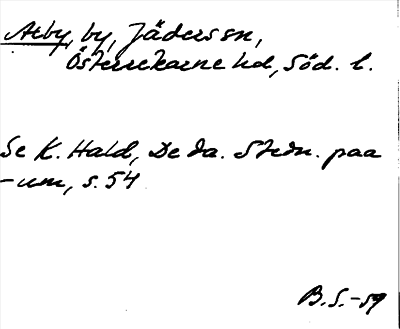 Aeby, by, Jäders sn,
Österrekarne hd, Söd. l.
Se K. Hald, De da. Stedn. paa
-um, s. 54
B. S. -59